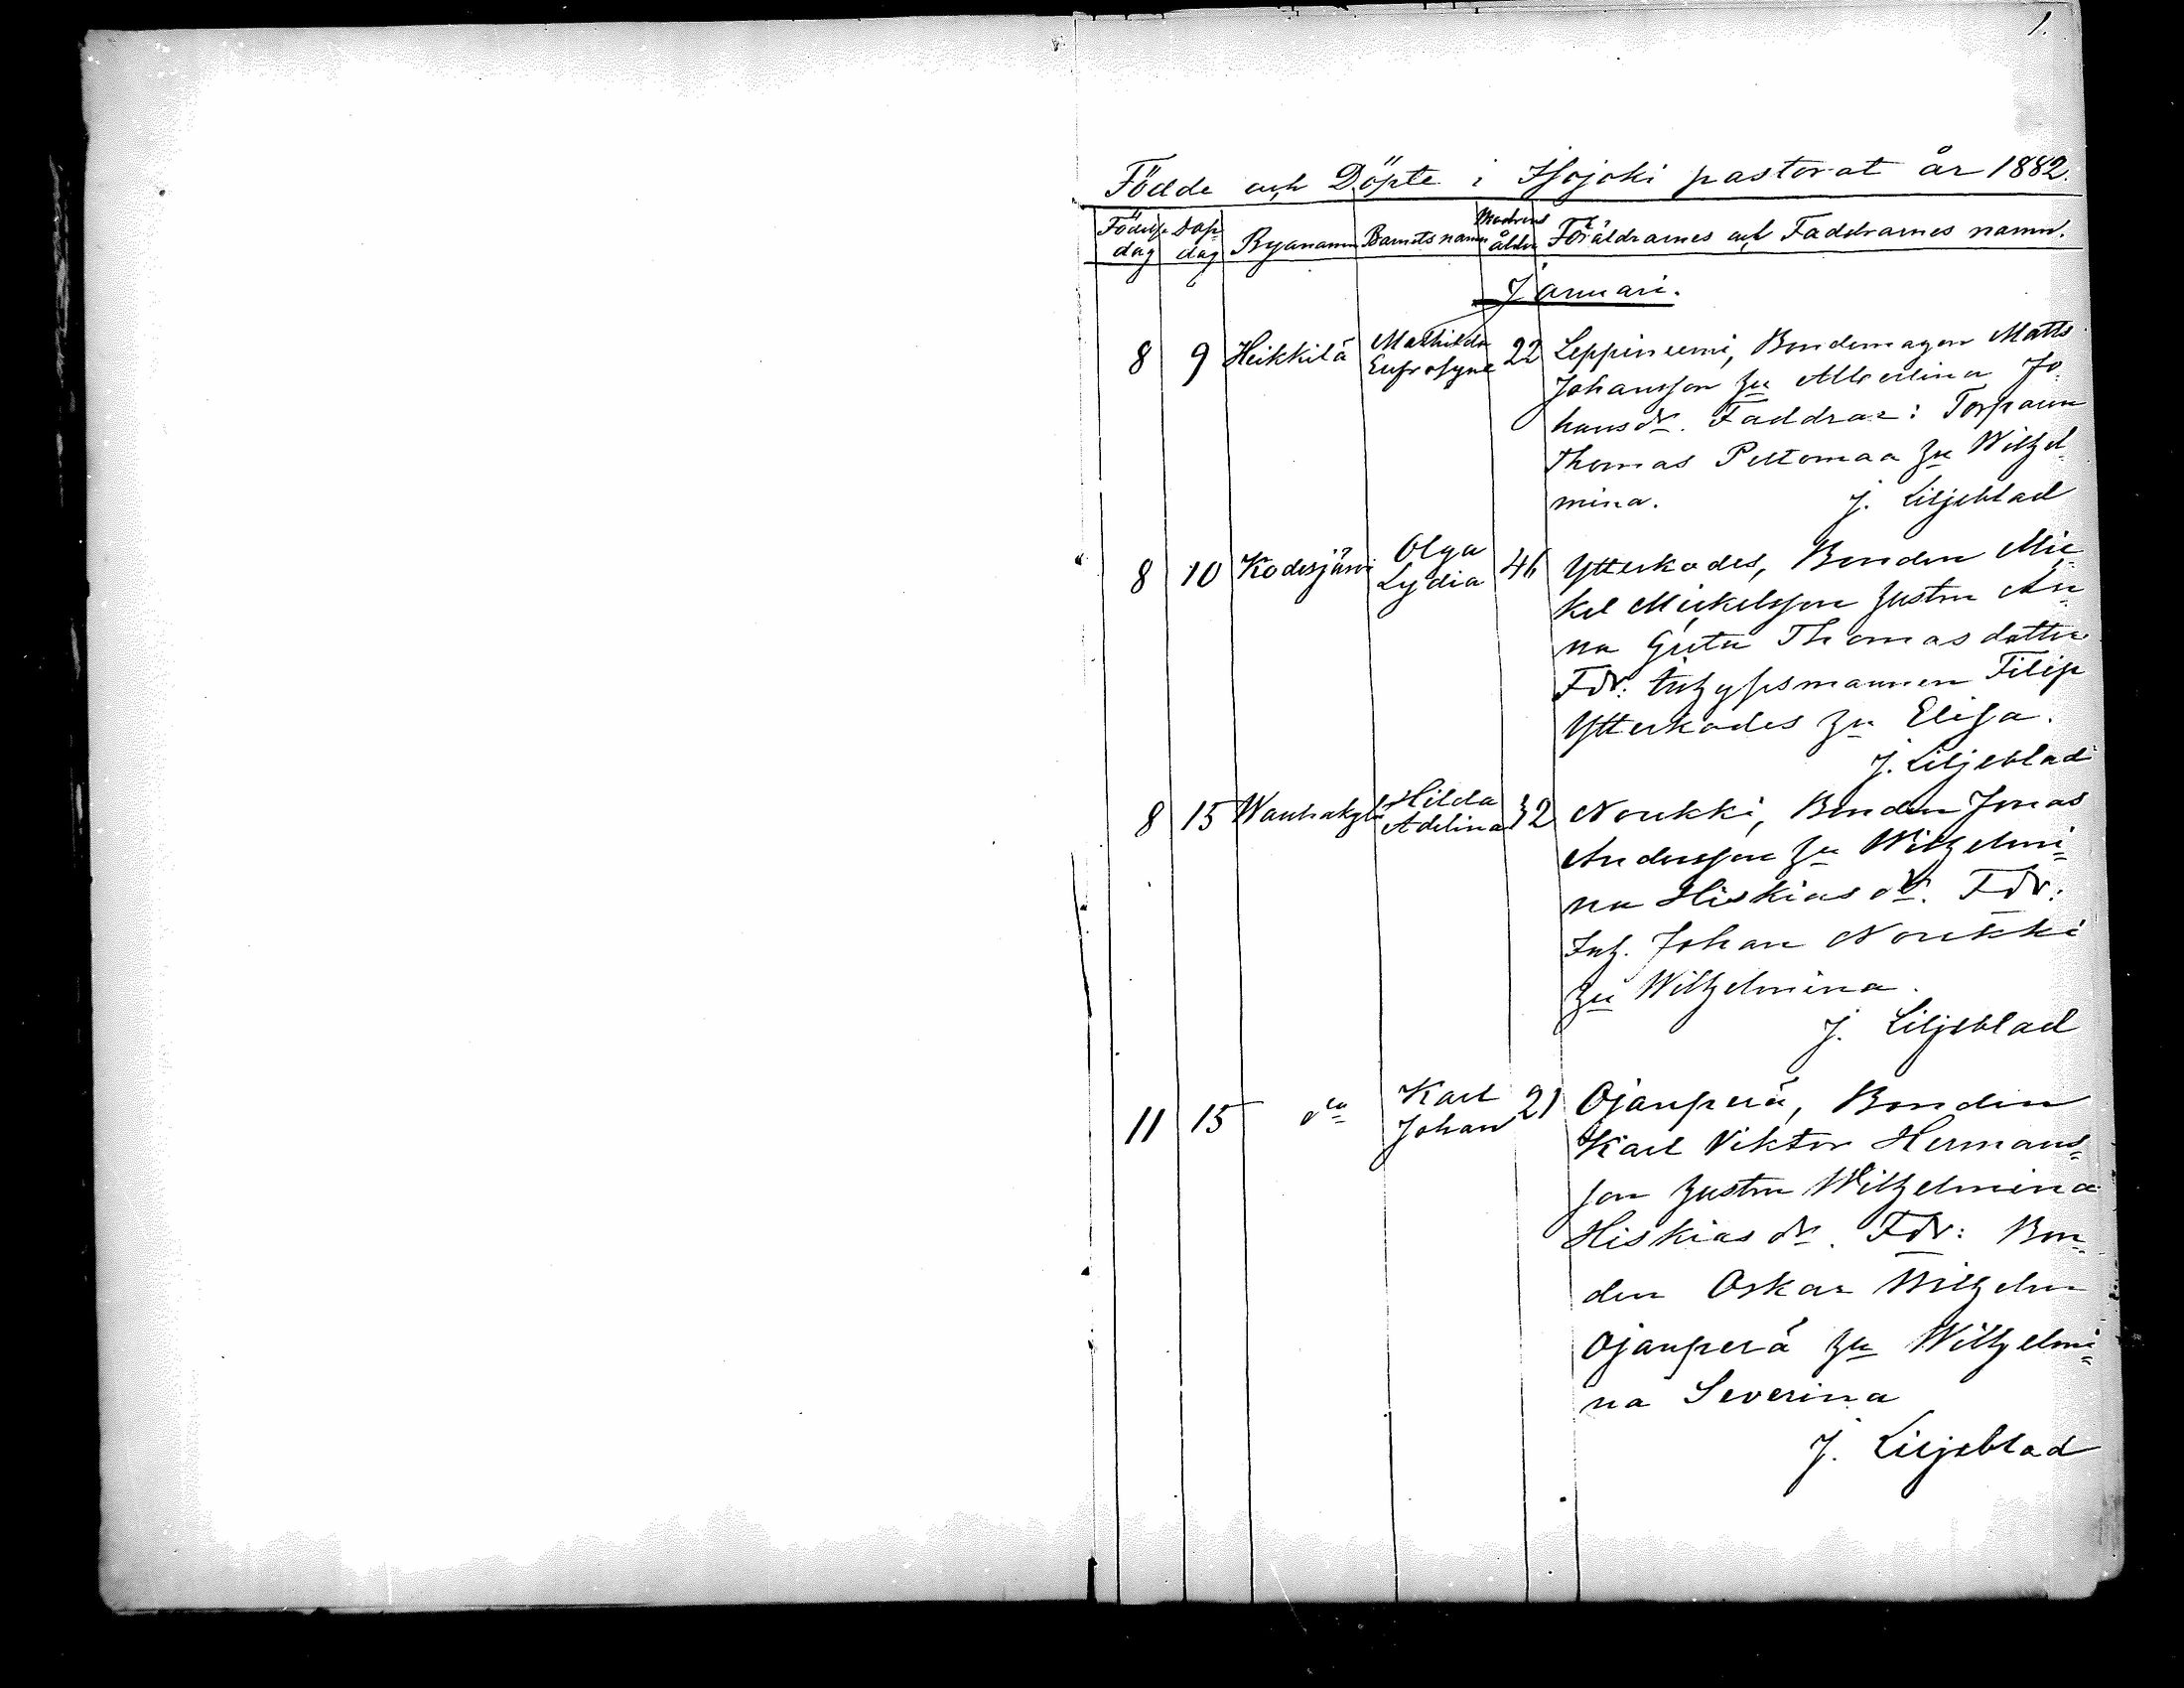 1.
Födde och Döpte i Isojoki pastorat år 1882.
Födelse dag Dop dag Byanamn Barnets namn Modrens ålder Föräldrarnes och Faddrarnes namn.
Januari.
8 9 Heikkilä Mathilda Eufrosyne 22 Leppiniemi, Bondemågen Matts
Johansson hu Albertina Jo-
hansdr. Faddrar: Torparen
Thomas Peltomaa hu Wilhel-
mina. J. Liljeblad
8 10 Kodesjärvi Olga Lydia 46 Ytterkodes, Bonden Mic-
kel Mickelsson hustru An-
na Greta Thomasdotter
Fdr: Inhysesmannen Filip
Ytterkodes hu Elisa.
J. Liljeblad
8 15 Wanhakylä Hilda Adelina 32 Noukki, Bonden Jonas
Andersson hu Wilhelmi=
na Hiskiasdr. Fdr:
Inh. Johan Noukki
hu Wilhelmina.
J. Liljeblad
11 15 do Karl Johan 21 Ojanperä, Bonden
Karl Viktor Hermans=
son hustru Wilhelmina
Hiskiasdr. Fdr: Bon-
den Oskar Wilhelm
Ojanperä hu Wilhelmi=
na Severina
J. Liljeblad